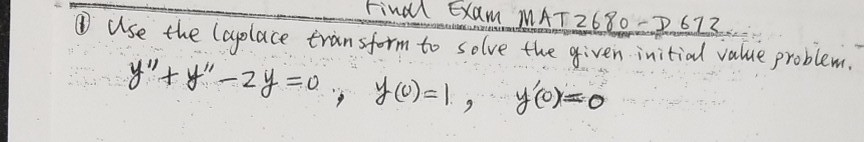 Final Exam MAT2680-D672
① Use the laplace transform to solve the given initial value problem.
y"+y"-2y=0, y(0)=1, y'(0)=0